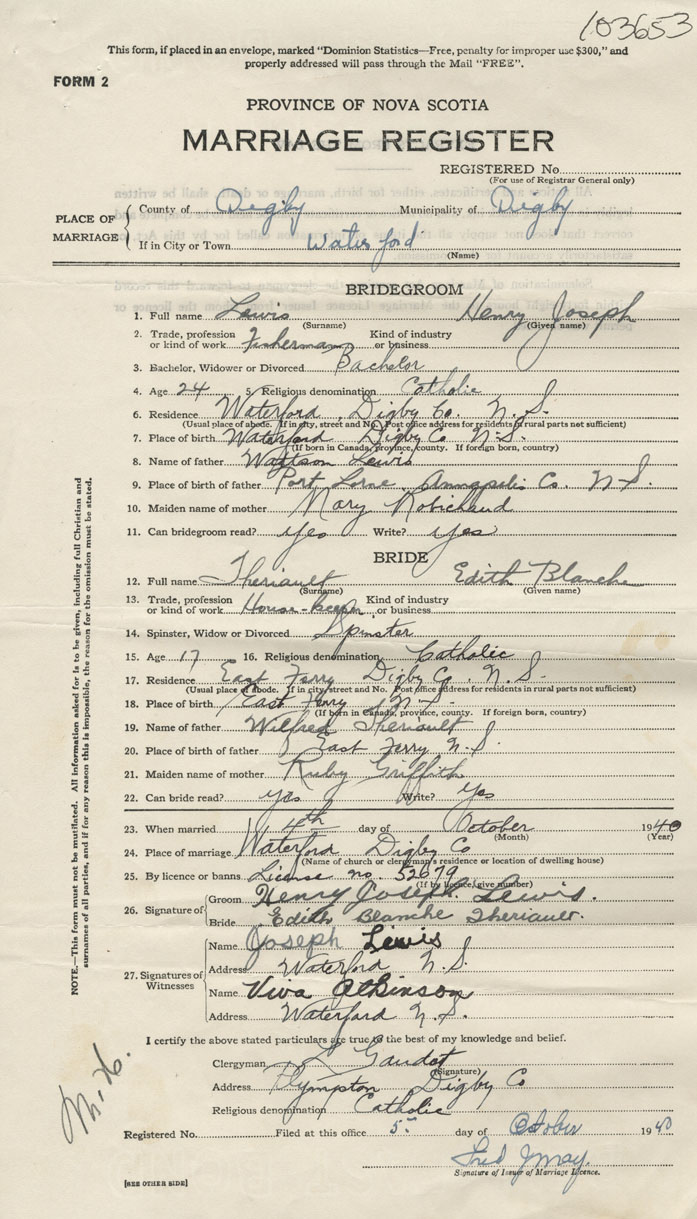 103653
This form, if placed in an envelope, marked "Dominion Statistics—Free, penalty for improper use $300," and
properly addressed will pass through the Mail "FREE".
FORM 2
PROVINCE OF NOVA SCOTIA
MARRIAGE REGISTER
REGISTERED No.
(For use of Registrar General only)
PLACE OF MARRIAGE
County of Digby Municipality of Digby
If in City or Town Waterford
(Name)
BRIDEGROOM
1. Full name Lewis Henry Joseph
(Surname) (Given name)
2. Trade, profession or kind of work Fisherman Kind of industry or business
3. Bachelor, Widower or Divorced Bachelor
4. Age 24 5. Religious denomination Catholic
6. Residence Waterford, Digby Co. N.S.
(Usual place of abode. If in city, street and No. Post office address for residents in rural parts not sufficient)
7. Place of birth Waterford Digby Co N.S.
(If born in Canada, province, county. If foreign born, country)
8. Name of father Wattson Lewis
9. Place of birth of father Port Lorne, Annapolis Co. N.S.
10. Maiden name of mother Mary Robichaud
11. Can bridegroom read? yes Write? yes
BRIDE
12. Full name Theriault Edith Blanche
(Surname) (Given name)
13. Trade, profession or kind of work House-keeper Kind of industry or business
14. Spinster, Widow or Divorced Spinster
15. Age 17 16. Religious denomination Catholic
17. Residence East Ferry Digby Co. N.S.
(Usual place of abode. If in city, street and No. Post office address for residents in rural parts not sufficient)
18. Place of birth East Ferry, N.S.
(If born in Canada, province, county. If foreign born, country)
19. Name of father Wilfred Theriault
20. Place of birth of father East Ferry N.S.
21. Maiden name of mother Ruby Griffith
22. Can bride read? yes Write? yes
23. When married 4th day of October 1940
(Month) (Year)
24. Place of marriage Waterford Digby Co
(Name of church or clergyman's residence or location of dwelling house)
25. By licence or banns License no. 52679
(If by licence, give number)
26. Signature of
Groom Henry Joseph Lewis.
Bride Edith Blanche Theriault.
27. Signatures of Witnesses
Name Joseph Lewis
Address Waterford N.S.
Name Viva Atkinson
Address Waterford N.S.
I certify the above stated particulars are true to the best of my knowledge and belief.
Clergyman L Gaudet
(Signature)
Address Plympton Digby Co
Religious denomination Catholic
Registered No. Filed at this office 5th day of October 1940
Fred J May.
Signature of Issuer of Marriage Licence.
[SEE OTHER SIDE]
NOTE.—This form must not be mutilated. All information asked for is to be given, including full Christian and
surnames of all parties, and if for any reason this is impossible, the reason for the omission must be stated.